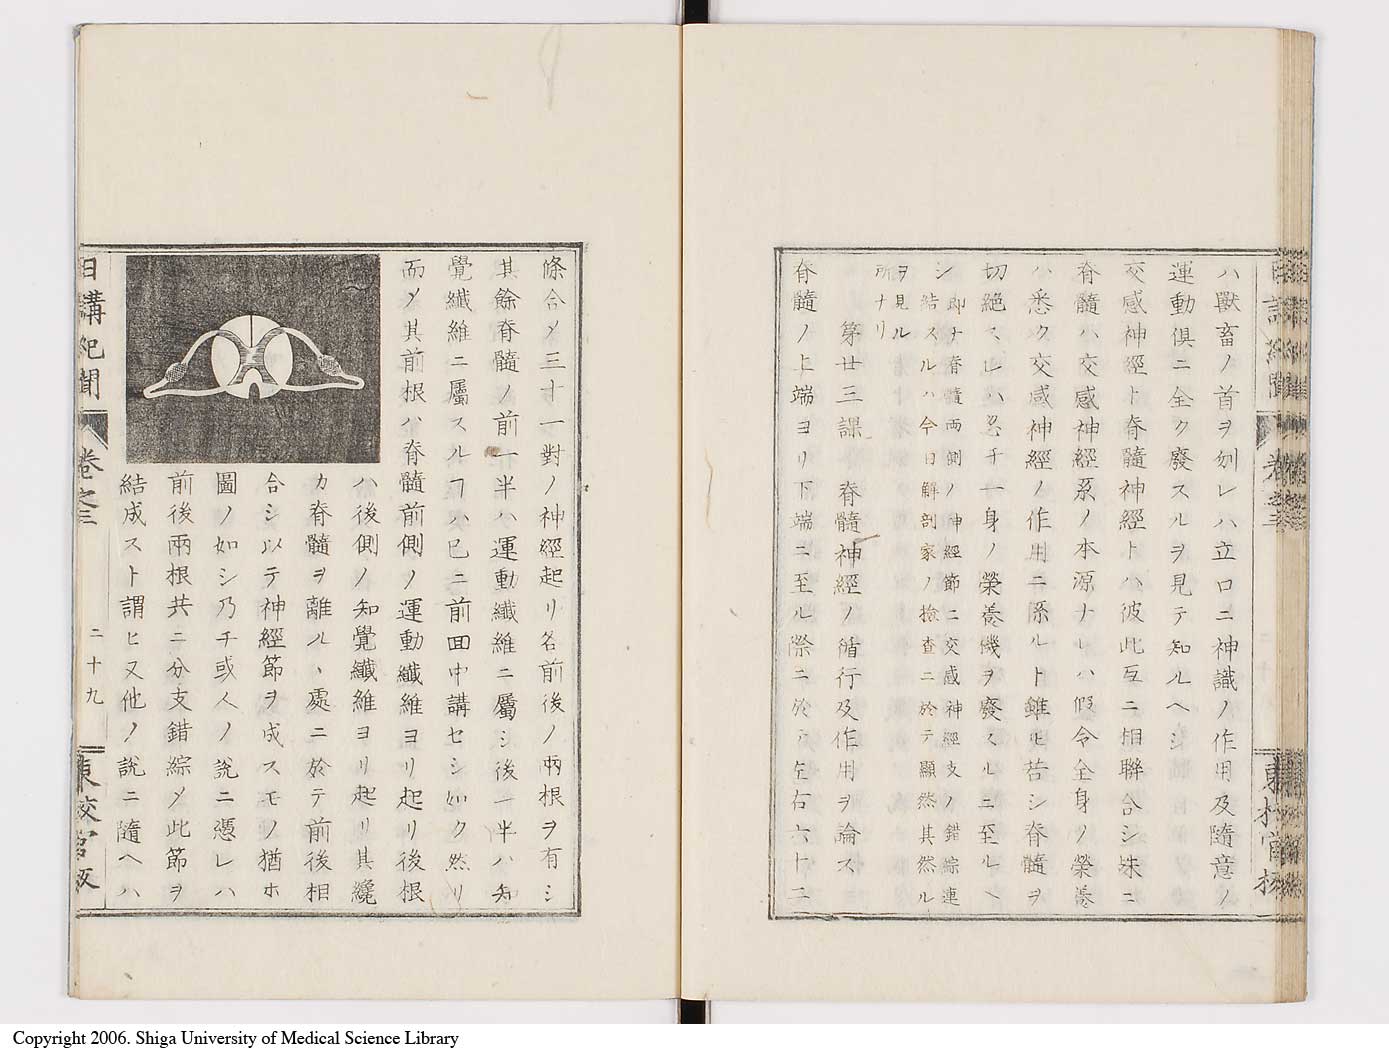 ハ獸畜ノ首ヲ刎レハ立口ニ神識ノ作用及隨意ノ
運動俱ニ全ク廢スルヲ見テ知ルヘシ
交感神經ト脊髓神經トハ彼此互ニ相聯合シ殊ニ
脊髓ハ交感神經系ノ本源ナレハ假令全身ノ榮養
ハ悉ク交感神經ノ作用ニ係ルト雖𪜈苦シ脊髓ヲ
切絕スレハ忽チ一身ノ榮養機ヲ廢スルニ至ルヘ
シ即チ脊髓兩側ノ神經節ニ交感神經支ノ錯綜連
結スルハ今日解剖家ノ檢査ニ於テ顯然其然ル
ヲ見ル
所ナリ
第廿三課 脊髓神經ノ循行及作用ヲ論ス
脊髓ノ上端ヨリ下端ニ至ル際ニ於テ左右六十二
卷之三
條合〆三十一對ノ神經起リ各前後ノ兩根ヲ有シ
其餘脊髓ノ前一半ハ運動纖維ニ屬シ後一半ハ知
覺纖維ニ屬スルヿハ已ニ前回中講セシ如ク然リ
而〆其前根ハ脊髓前側ノ運動纖維ヨリ起リ後根
ハ後側ノ知覺纖維ヨリ起リ其纔
カ脊髓ヲ離ルヽ處ニ於テ前後相
合シ以テ神經節ヲ成スモノ猶ホ
圖ノ如シ乃チ或人ノ說ニ憑レハ
前後兩根共ニ分支錯綜〆此節ヲ
結成スト謂ヒ又他ノ說ニ隨ヘハ
日講紀聞 卷之三 二十九 東校官版
Copyright 2006. Shiga University of Medical Science Library